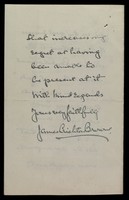 that increases my
regret at having
been unable to
be present at it
With kind regards
Yours very faithfully
James Crichton Browne